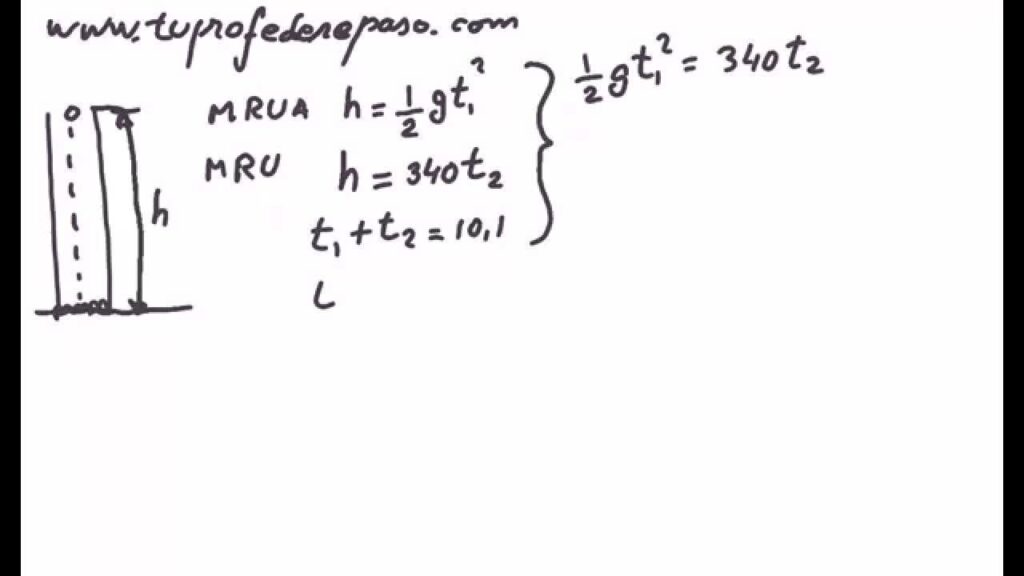 www.tuprofederepaso.com
MRUA h = 1/2 gt₁²
MRU h = 340t₂
t₁ + t₂ = 10,1
h
1/2 gt₁² = 340t₂